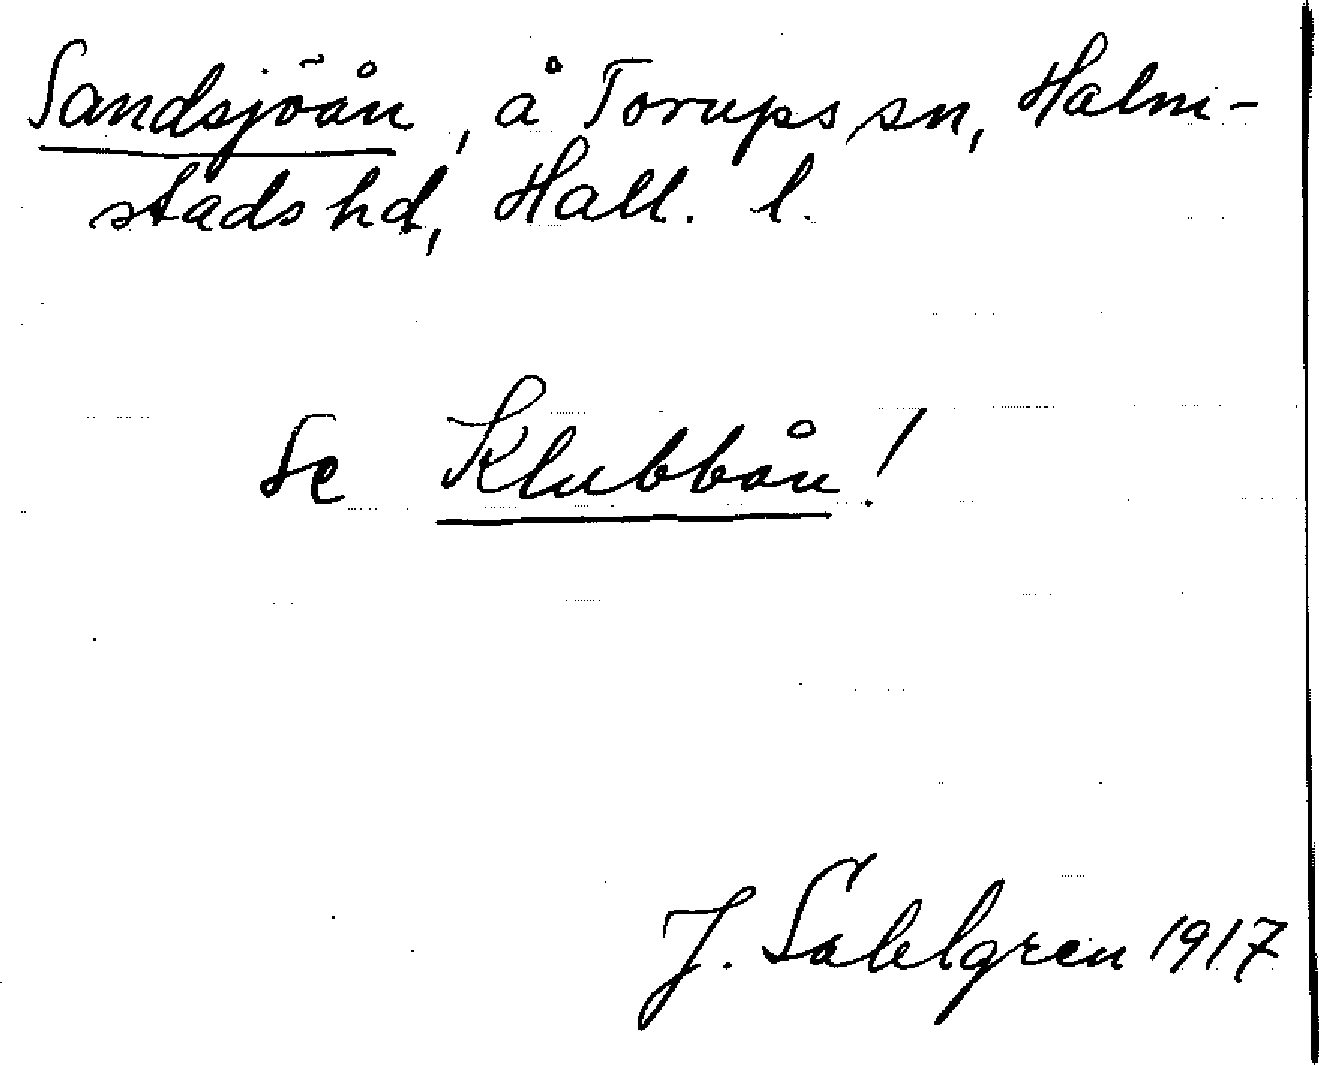 Sandsjöån, å Torups sn, Halm-
stads hd, Hall. l.
Se Klubbån!
J. Sahlgren 1917